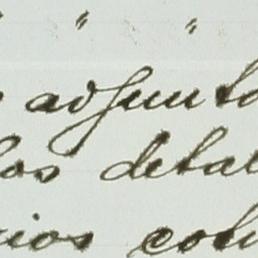 " "
adjunto
los detal
cios cotu